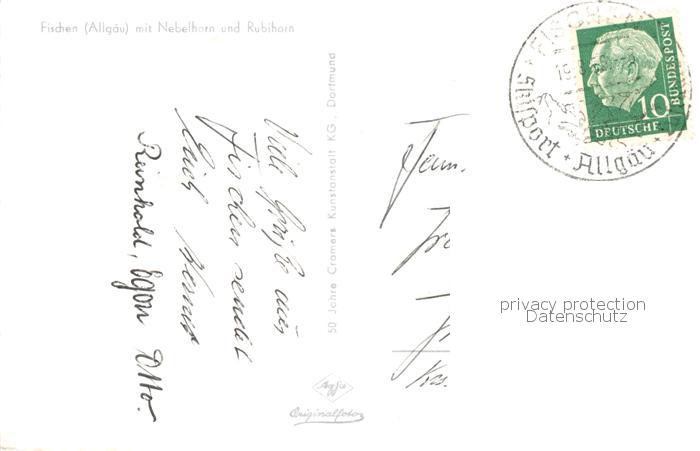 Fischen (Allgäu) mit Nebelhorn und Rubihorn
Viele Grüße aus
Fischen sendet
Euch
Reinhold, Egon Otto.
50 Jahre Cramers Kunstanstalt KG., Dortmund
Agfa
Originalfoto
FISCHEN
Skisport • Allgäu •
10
DEUTSCHE
BUNDESPOST
Fam.
privacy protection
Datenschutz